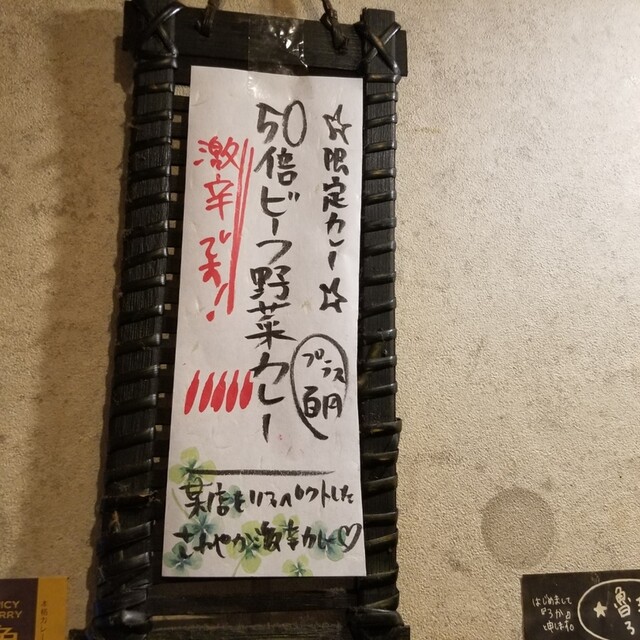 ☆限定カレー☆
50倍ビーフ野菜カレー
プラス
百円
激辛です!
某店をリスペクトした
さわやか激辛カレー♡
本格カレー
ICY
RRY
はじめまして
と申します。